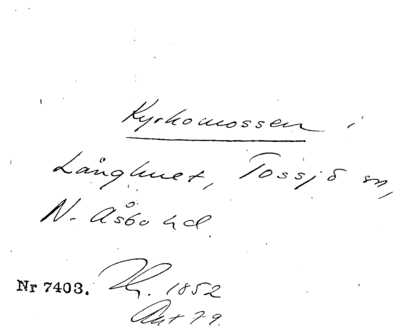 Kyrkomossen i
Långhult, Tossjö sn,
N. Åsbo hd.
Nr 7403. 1852
Ant 79.